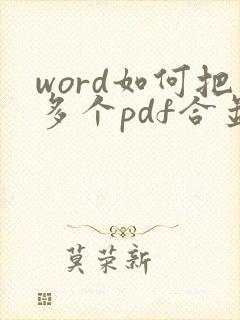 word如何把
多个pdf合
莫荣新